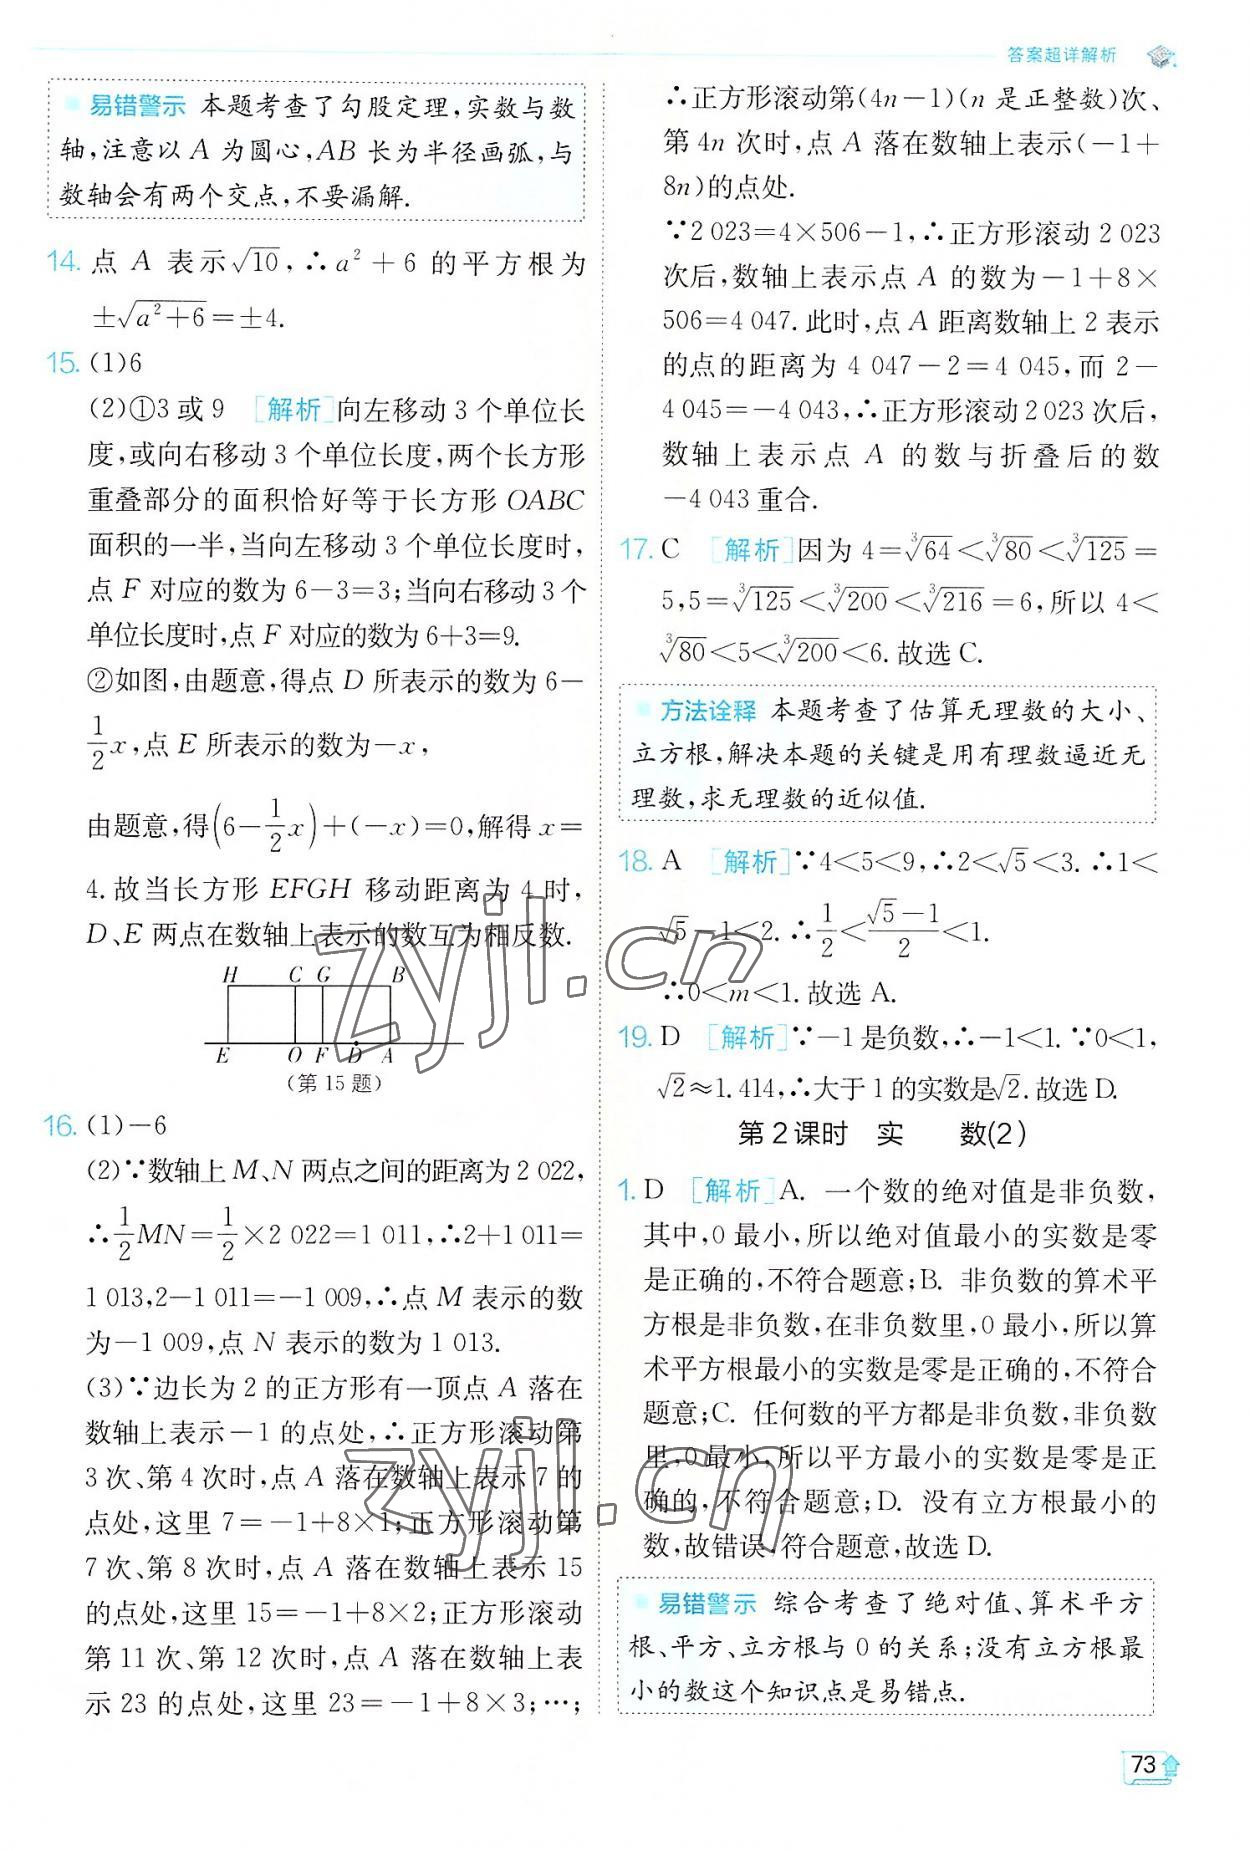 答案超详解析
易错警示 本题考查了勾股定理,实数与数
轴,注意以 A 为圆心,AB 长为半径画弧,与
数轴会有两个交点,不要漏解.
14. 点 A 表示√10,∴a²+6 的平方根为
±√(a²+6)=±4.
15. (1)6
(2)①3 或 9 [解析]向左移动 3 个单位长
度,或向右移动 3 个单位长度,两个长方形
重叠部分的面积恰好等于长方形 OABC
面积的一半,当向左移动 3 个单位长度时,
点 F 对应的数为 6-3=3;当向右移动 3 个
单位长度时,点 F 对应的数为 6+3=9.
②如图,由题意,得点 D 所表示的数为 6-
1/2 x,点 E 所表示的数为-x,
由题意,得(6-1/2 x)+(-x)=0,解得 x=
4.故当长方形 EFGH 移动距离为 4 时,
D、E 两点在数轴上表示的数互为相反数.
H C G B
E O F D A
(第 15 题)
16. (1)-6
(2)∵数轴上 M、N 两点之间的距离为 2 022,
∴1/2 MN=1/2×2 022=1 011,∴2+1 011=
1 013,2-1 011=-1 009,∴点 M 表示的数
为-1 009,点 N 表示的数为 1 013.
(3)∵边长为 2 的正方形有一顶点 A 落在
数轴上表示-1 的点处,∴正方形滚动第
3 次、第 4 次时,点 A 落在数轴上表示 7 的
点处,这里 7=-1+8×1;正方形滚动第
7 次、第 8 次时,点 A 落在数轴上表示 15
的点处,这里 15=-1+8×2;正方形滚动
第 11 次、第 12 次时,点 A 落在数轴上表
示 23 的点处,这里 23=-1+8×3;…;
∴正方形滚动第(4n-1)(n 是正整数)次、
第 4n 次时,点 A 落在数轴上表示(-1+
8n)的点处.
∵2 023=4×506-1,∴正方形滚动 2 023
次后,数轴上表示点 A 的数为-1+8×
506=4 047.此时,点 A 距离数轴上 2 表示
的点的距离为 4 047-2=4 045,而 2-
4 045=-4 043,∴正方形滚动 2 023 次后,
数轴上表示点 A 的数与折叠后的数
-4 043 重合.
17. C [解析]因为 4=∛64<∛80<∛125=
5,5=∛125<∛200<∛216=6,所以 4<
∛80<5<∛200<6.故选 C.
方法诠释 本题考查了估算无理数的大小、
立方根,解决本题的关键是用有理数逼近无
理数,求无理数的近似值.
18. A [解析]∵4<5<9,∴2<√5<3.∴1<
√5-1<2.∴1/2<(√5-1)/2<1.
∴0<m<1.故选 A.
19. D [解析]∵-1 是负数,∴-1<1.∵0<1,
√2≈1.414,∴大于 1 的实数是√2.故选 D.
第 2 课时 实 数(2)
1. D [解析]A. 一个数的绝对值是非负数,
其中,0 最小,所以绝对值最小的实数是零
是正确的,不符合题意;B. 非负数的算术平
方根是非负数,在非负数里,0 最小,所以算
术平方根最小的实数是零是正确的,不符合
题意;C. 任何数的平方都是非负数,非负数
里,0 最小,所以平方最小的实数是零是正
确的,不符合题意;D. 没有立方根最小的
数,故错误,符合题意,故选 D.
易错警示 综合考查了绝对值、算术平方
根、平方、立方根与 0 的关系;没有立方根最
小的数这个知识点是易错点.
73
zyjl.cn
zyjl.cn